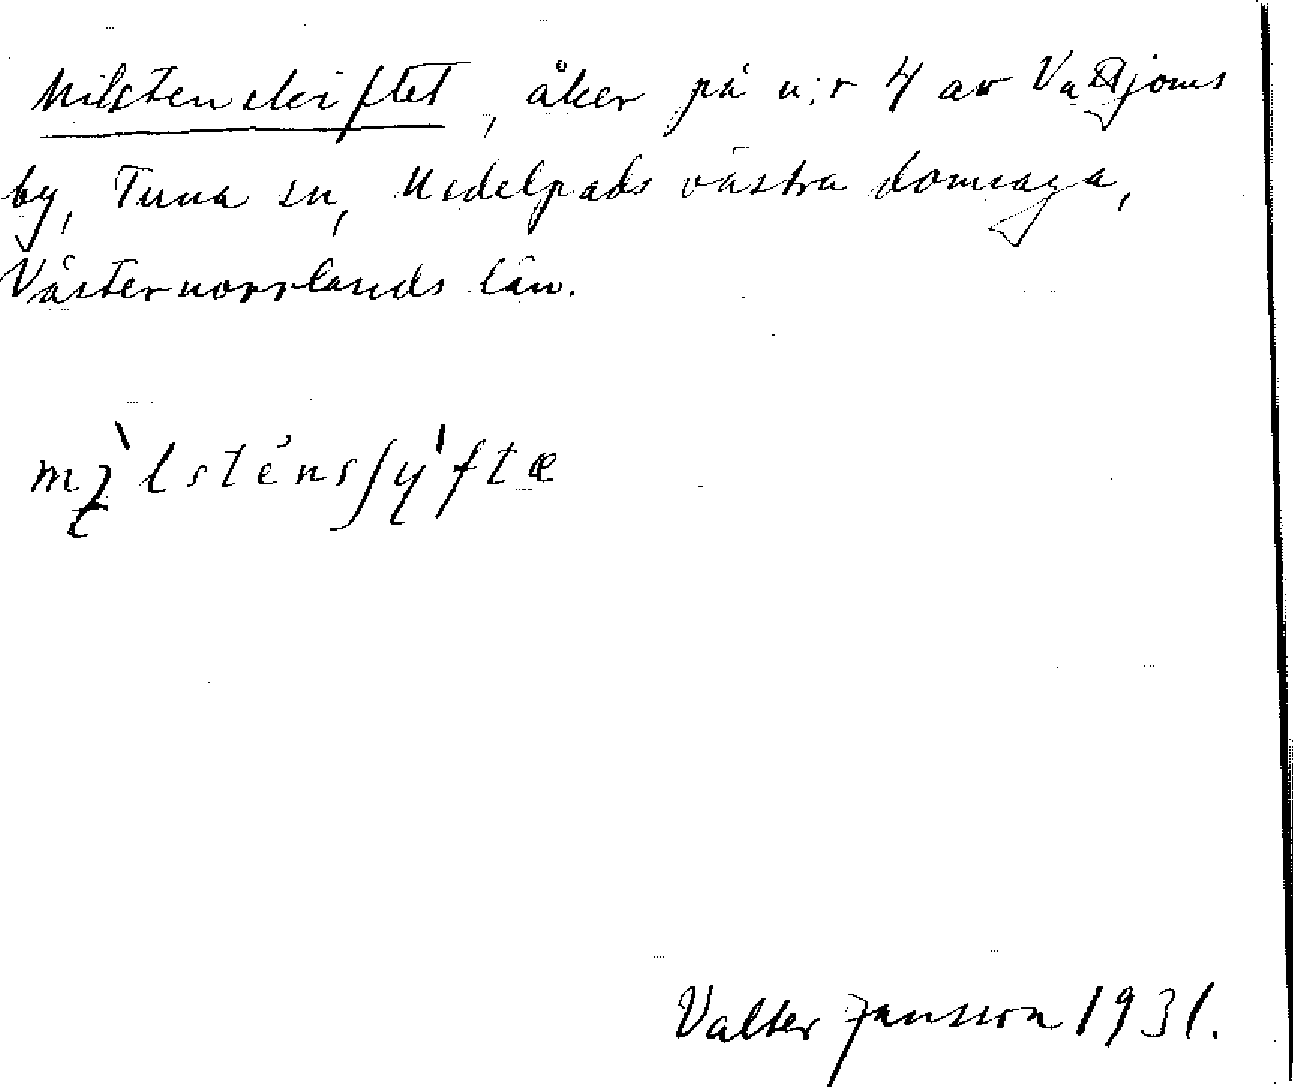 Milstenskiftet, åker på n:r 4 av Vattjoms
by, Tuna sn, Medelpads västra domsaga,
Västernorrlands län.
Valter Jansson 1931.